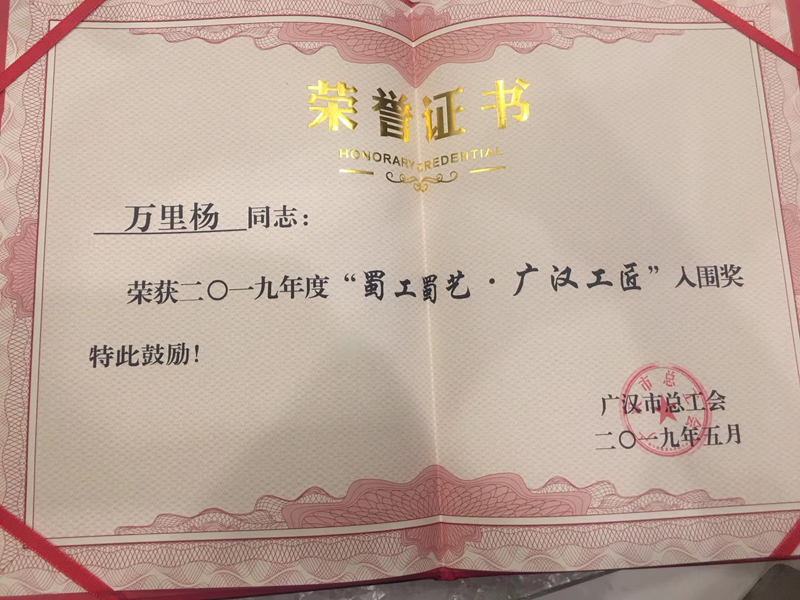 荣誉证书
HONORARY CREDENTIAL
万里杨 同志：
荣获二〇一九年度“蜀工蜀艺·广汉工匠”入围奖
特此鼓励！
广汉市总工会
二〇一九年五月